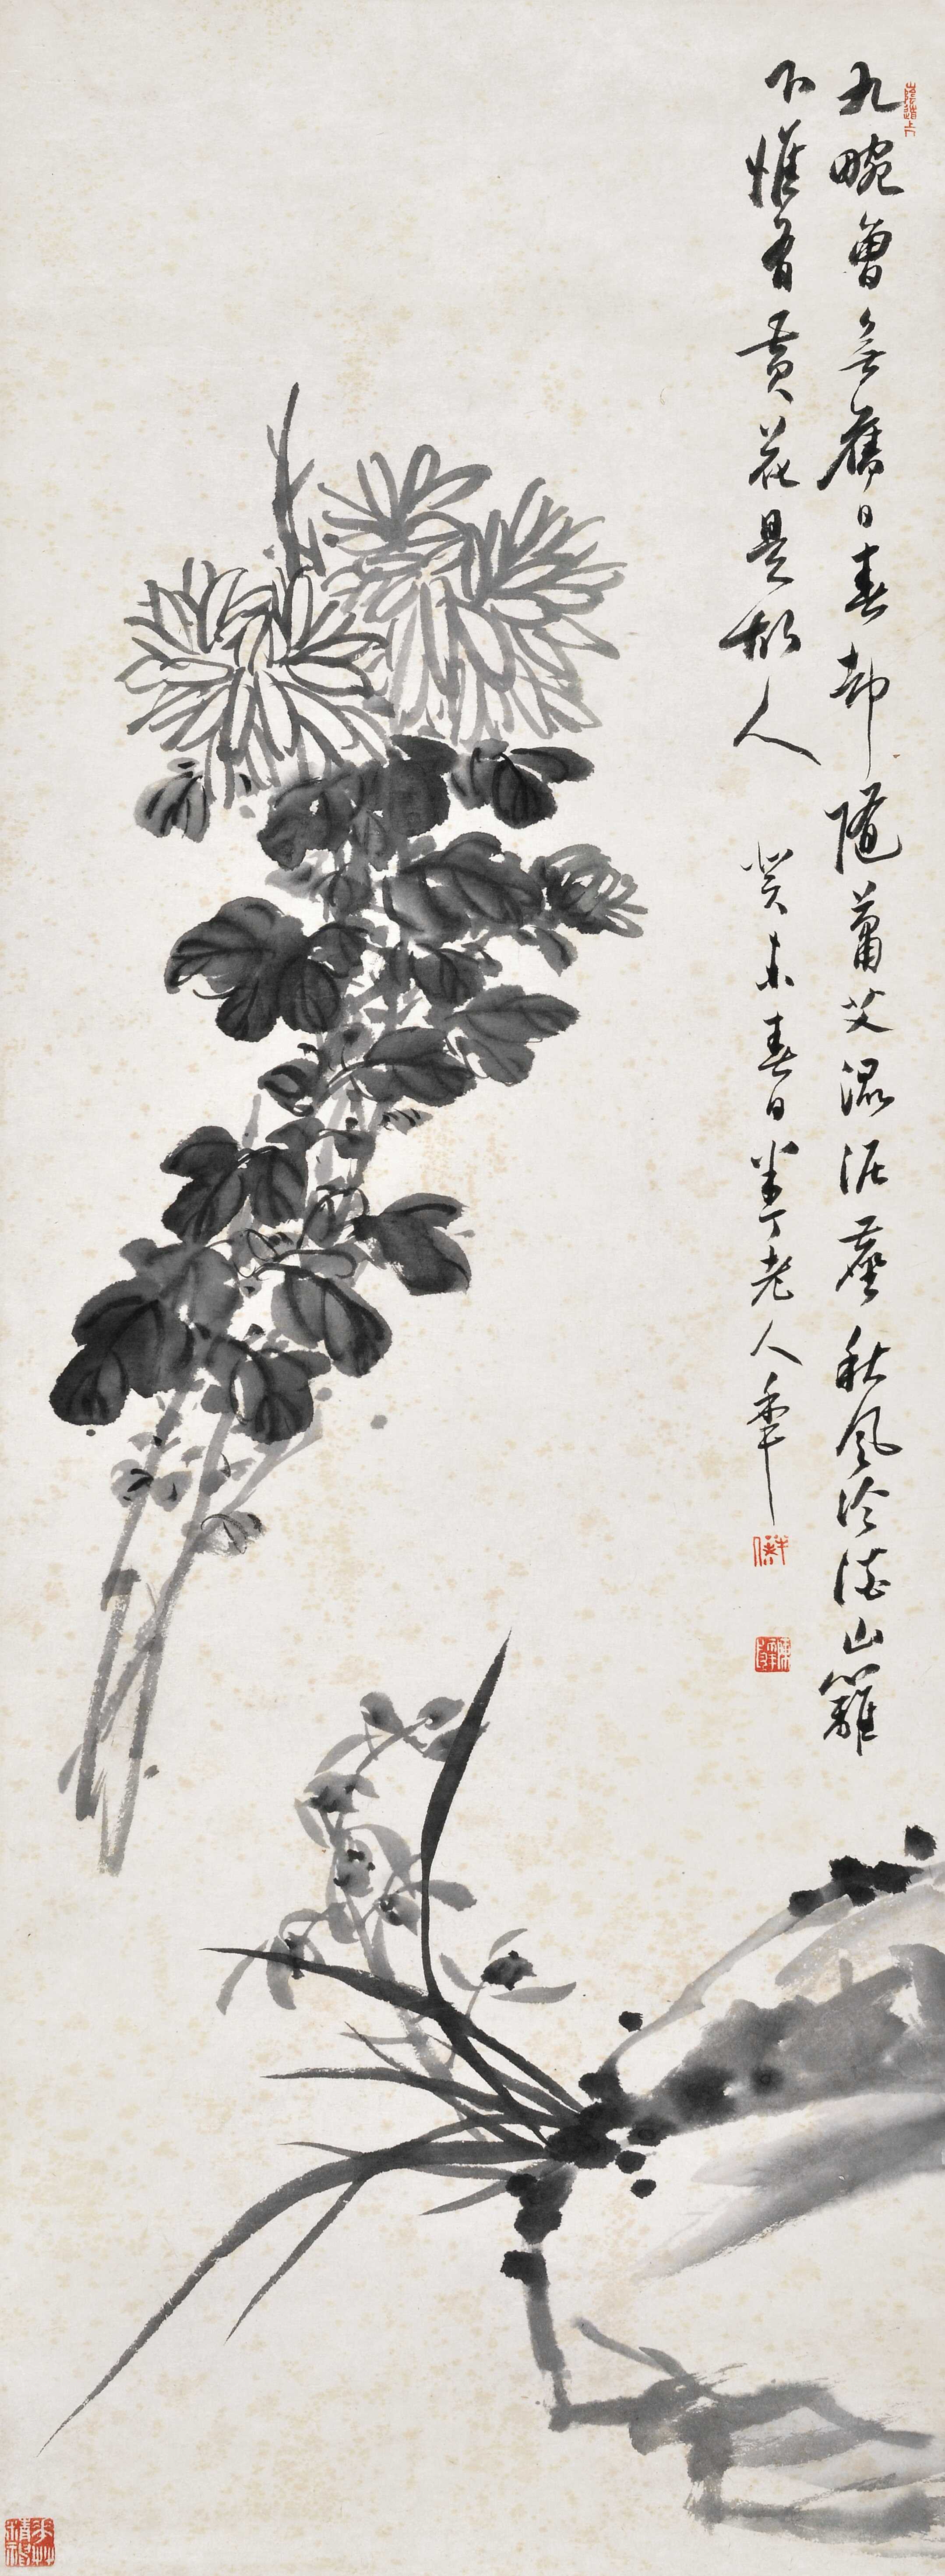 九畹曾無舊日春却隨蕭艾混泥塵秋風冷落山籬
下惟有黃花是故人
癸未春日半丁老人年